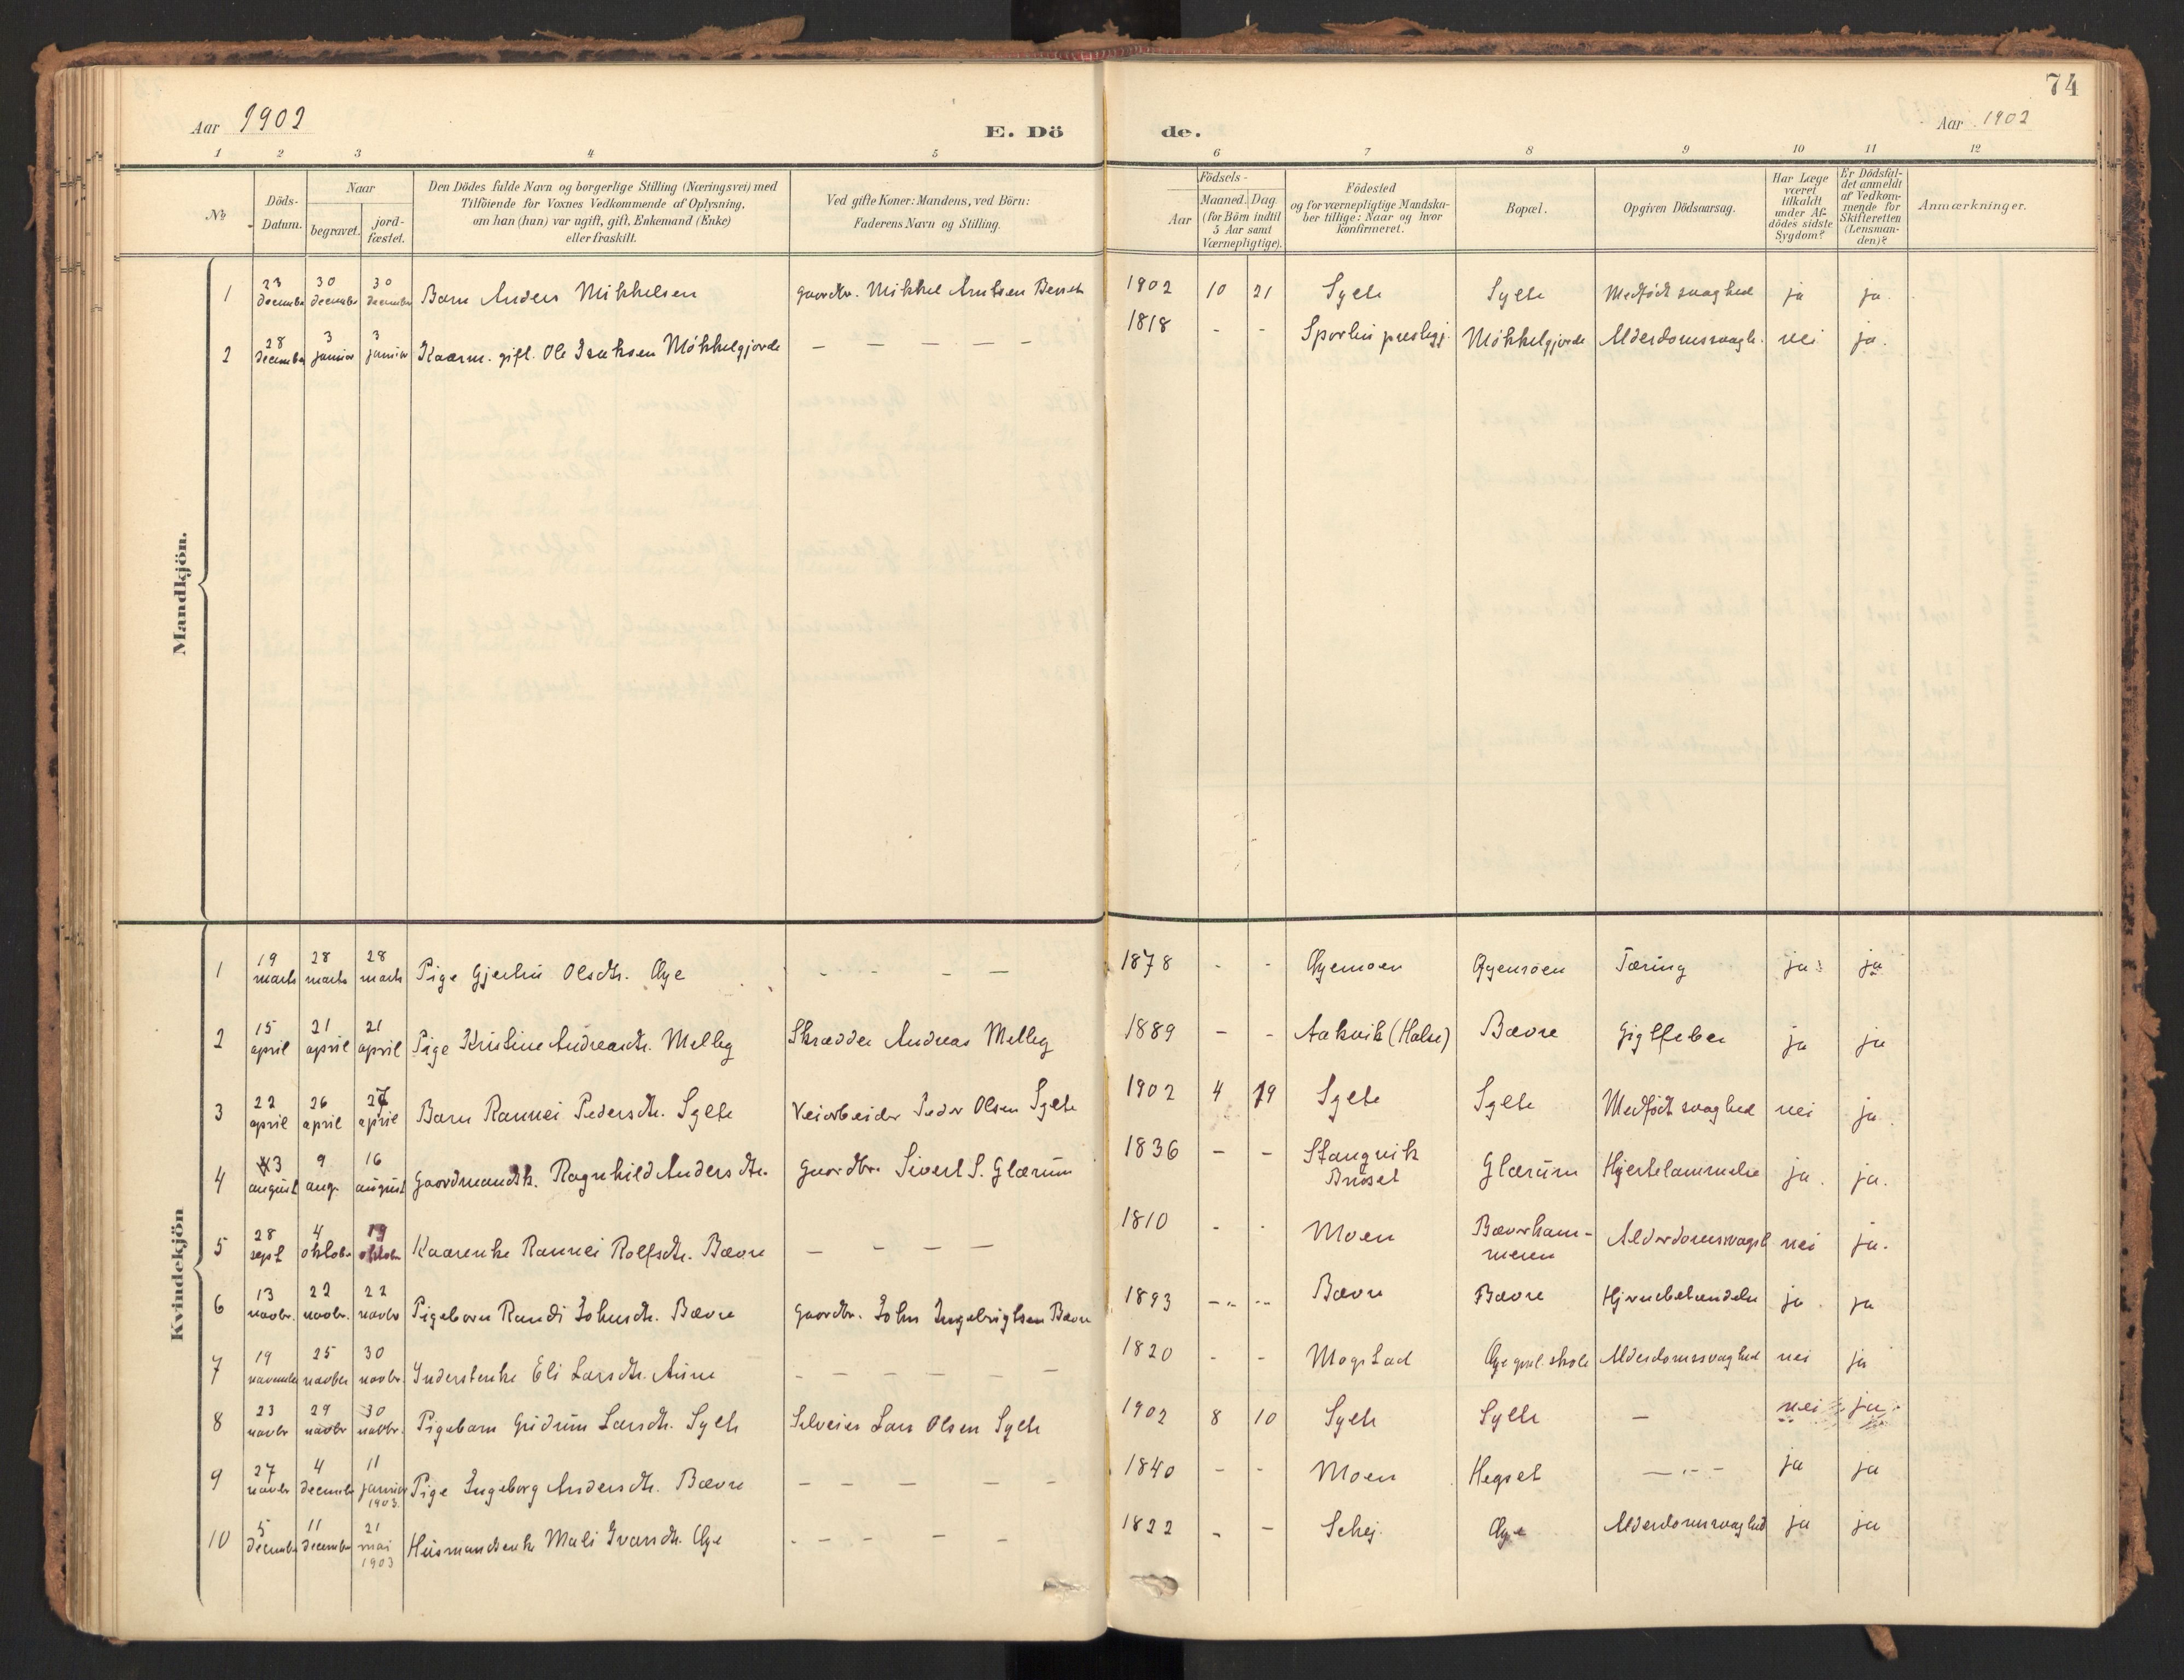 74
Aar 1902 E. Döde. Aar 1902
1 2 3 4 5 6 7 8 9 10 11 12
№
Döds-Datum.
Naar
begravet.
jord-fæstet.
Den Dödes fulde Navn og borgerlige Stilling (Næringsvei) med
Tilföiende for Voxnes Vedkommende af Oplysning,
om han (hun) var ugift, gift, Enkemand (Enke)
eller fraskilt.
Ved gifte Koner: Mandens, ved Börn:
Faderens Navn og Stilling.
Födsels-
Aar
Maaned. Dag
(for Börn indtil
5 Aar samt
Værnepligtige).
Födested
og for værnepligtige Mandska-
ber tillige: Naar og hvor
konfirmeret.
Bopæl.
Opgiven Dödsaarsag.
Har Læge
været
tilkaldt
under Af-
dödes sidste
Sygdom?
Er Dödsfal-
det anmeldt
af Vedkom-
mende for
Skifteretten
(Lensman-
den)?
Anmærkninger.
Mandkjön.
1 23 december 30 december 30 december Barn Anders Mikkelsen gaardbr. Mikkel Arntsen 1902 10 21 Sylte Sylte Medfödt svaghed ja ja.
2 28 december 3 januar 3 januar Kaarm. gift. Ole Isaksen Mökkelgjerde — — — — — 1818 - - presteg. Mökkelgjerde Alderdomssvagh. nei ja.
Kvindekjön
1 19 marts 28 marts 28 marts Pige Olsdtr. Øye - - - — 1878 - - Øyemoen Øyemoen Tæring ja ja
2 15 april 21 april 21 april Pige Kristine Andreasdtr. Melby Skrædder Andreas Melby 1889 - - Aakvik (Halse) Bævre Gigtfeber ja ja
3 22 april 26 april 27 april Barn Rannei Pedersdtr. Sylte Veiarbeider Peder Olsen Sylte 1902 4 19 Sylte Sylte Medfödt svaghed nei ja.
4 3 august 9 aug. 16 august Gaardmandsk. Ragnhild Andersdtr. Gaardbr. Sivert S. Glærum 1836 - - Stangvik Glærum Hjertelammelse ja. ja.
5 28 sept 4 oktober 19 oktober Kaarenke Rannei Rolfsdtr. Bævre — - - — 1810 - - Moen Bæverham-
meren Alderdomssvagh nei ja.
6 13 novbr. 22 novbr. 22 novbr Pigebarn Randi Johnsdtr. Bævre Gaardbr. John Ingebrigtsen Bævre 1893 - - Bævre Bævre ja. ja
7 19 november 25 novber 30 novbr. Inderstenke Eli Larsdtr. Aune - - - - - — 1820 - - Mogstad Øye Alderdomssvaghed nei ja
8 23 novbr 29 novbr 30 novbr. Pigebarn Gudrun Larsdtr. Sylte Selveier Lars Olsen Sylte 1902 8 10 Sylte Sylte — nei ja.
9 27 novbr 4 decembr 11 januar 1903. Pige Ingeborg Andersdtr. Bævre — — — — - 1840 - - Moen Hegset — - - ja ja
10 5 december 11 december 21 mai 1903 Husmandsenke Mali Ivarsdtr. Øye - - - — - 1822 - - Øye Alderdomssvaghed ja ja